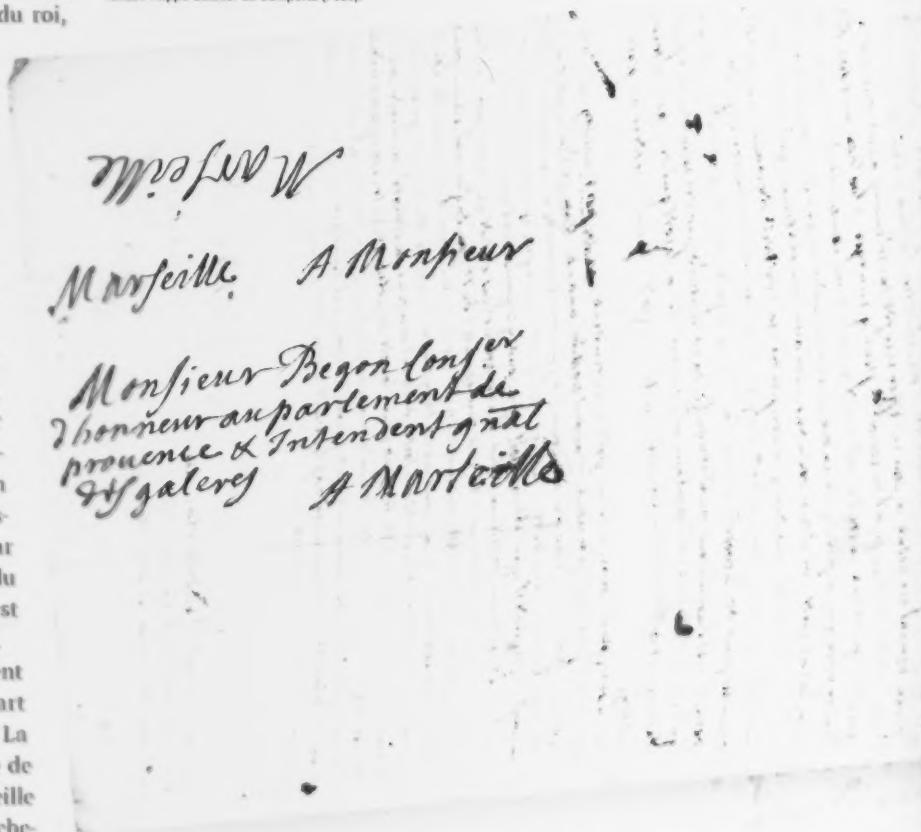 du roi,
Marseille
Marseille A Monsieur
Monsieur Begon Conser
d'honneur au parlement de
prouence & Intendent gnãl
des galeres A Marseille
du
st
ent
art
La
de
eille